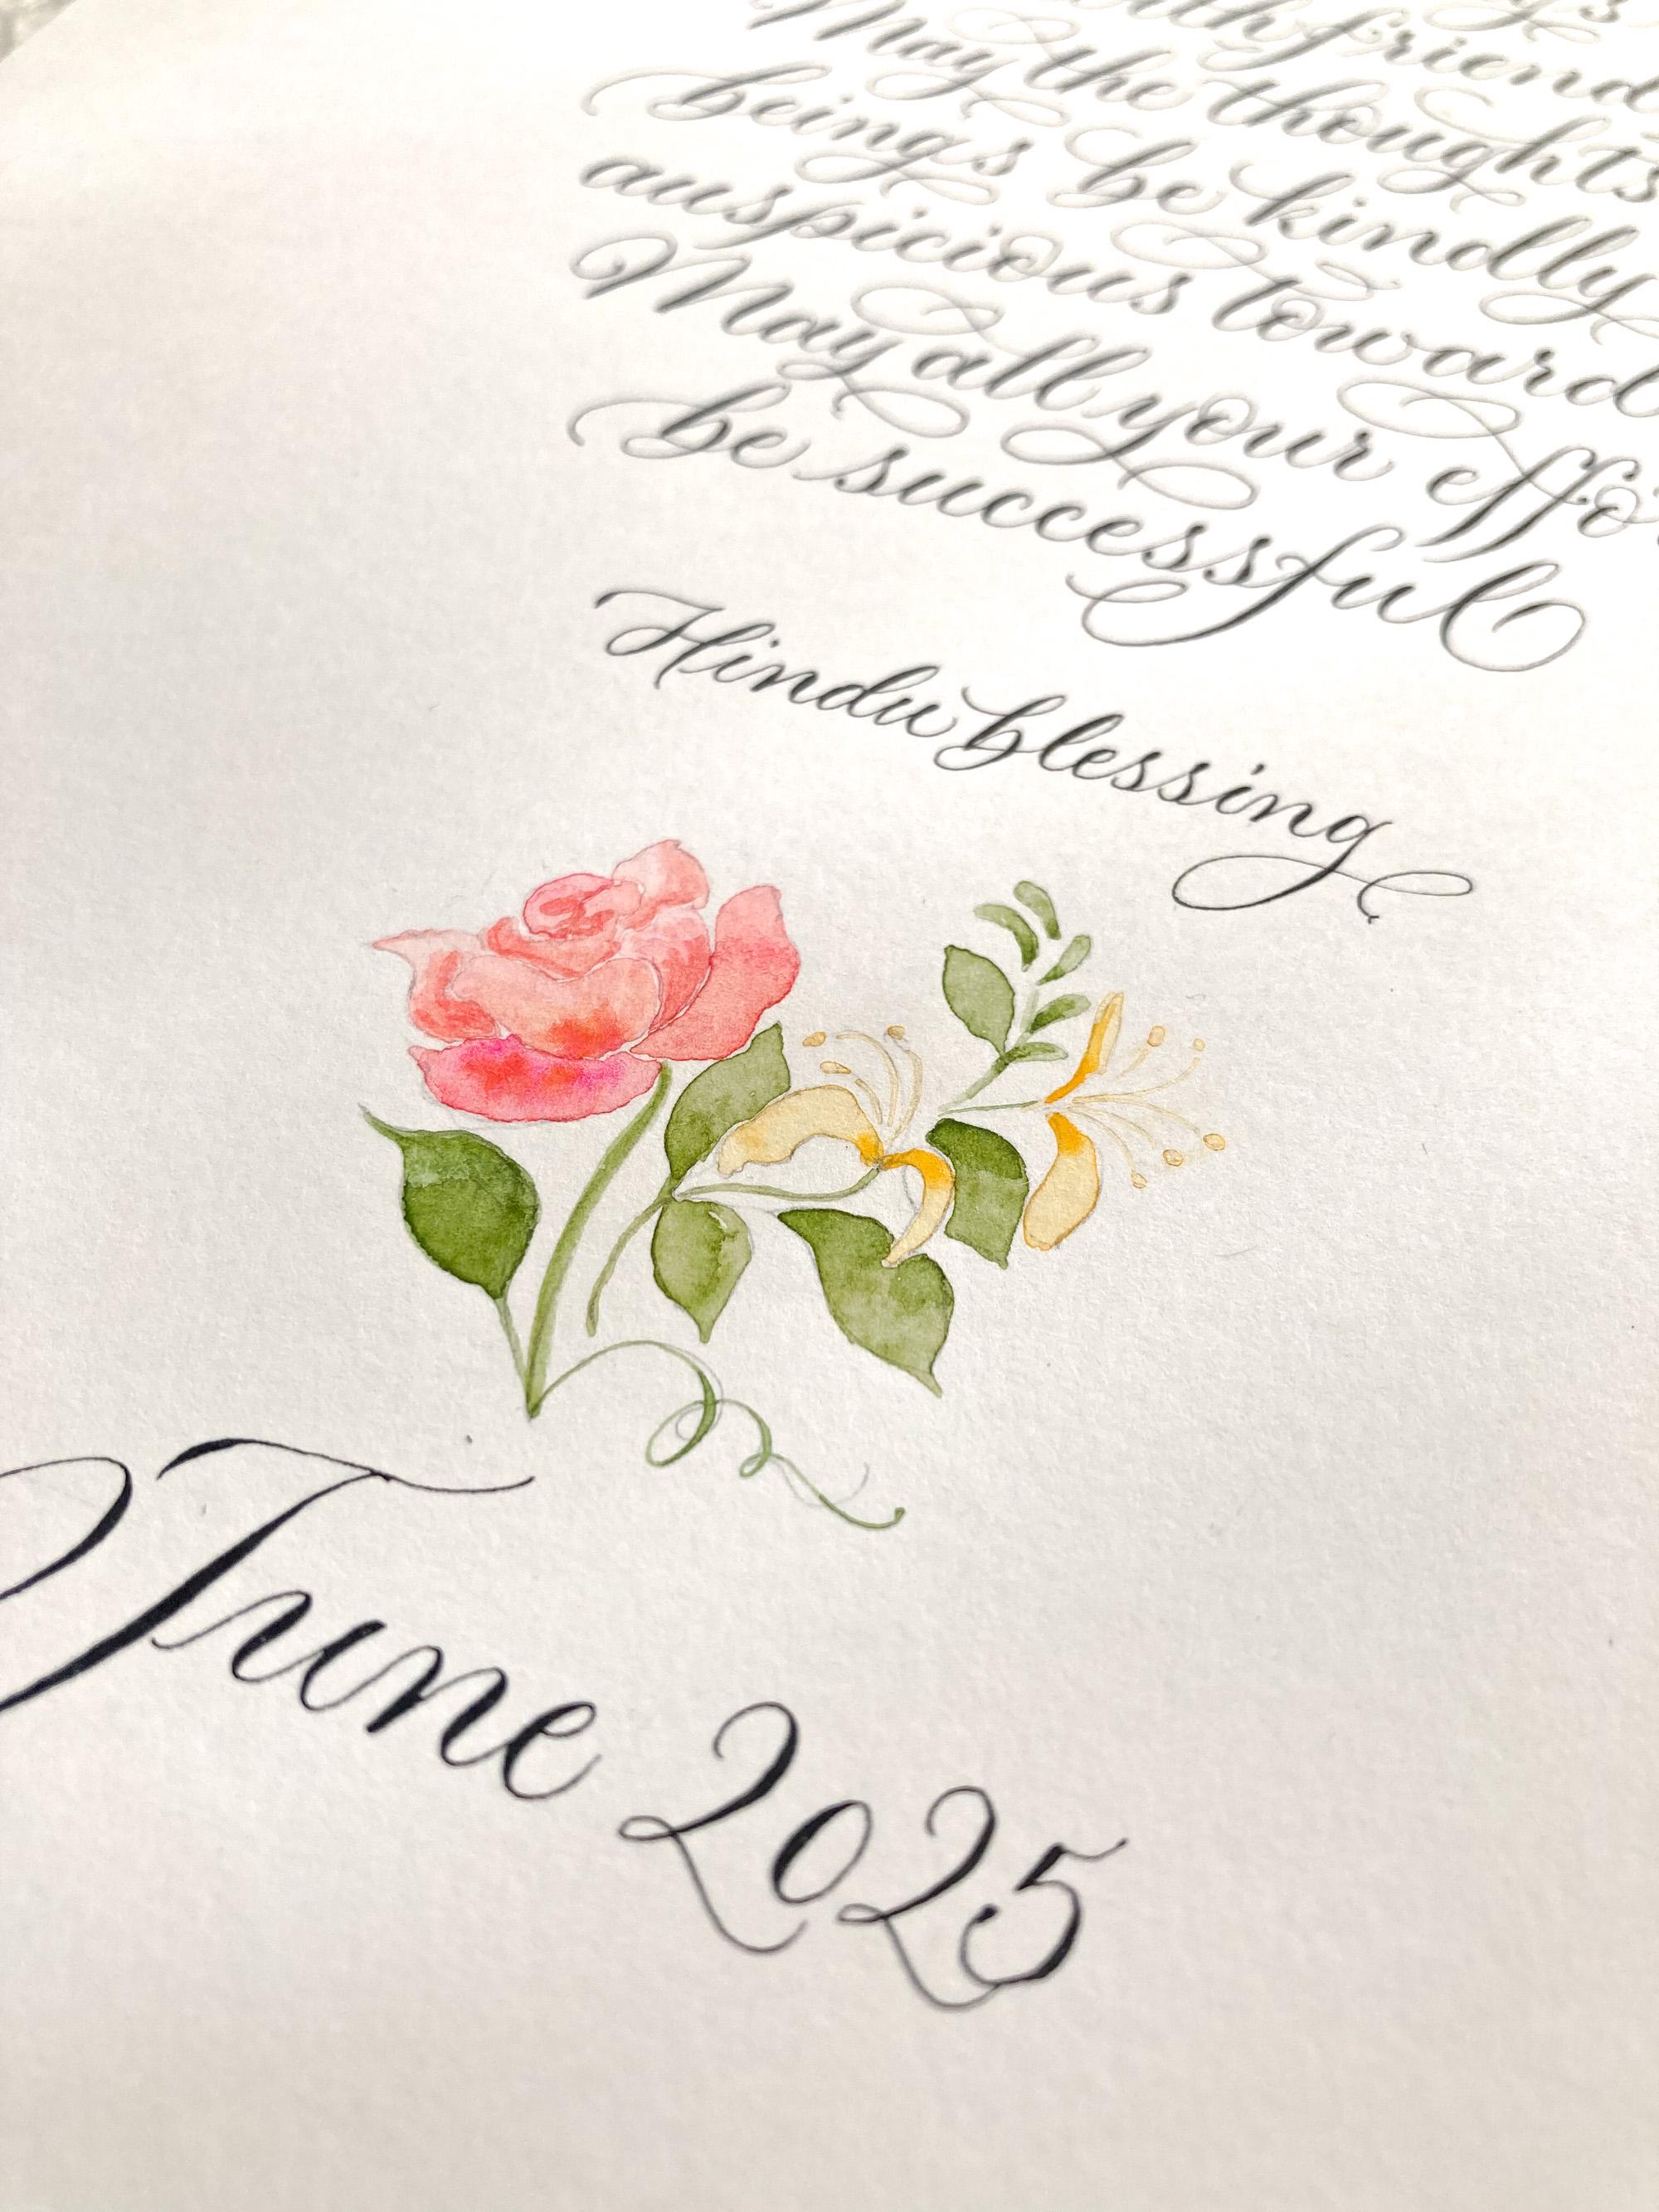 with friend
May the thoughts
beings be kindly
auspicious toward
May all your effo
be successful
Hindu blessing
June 2025